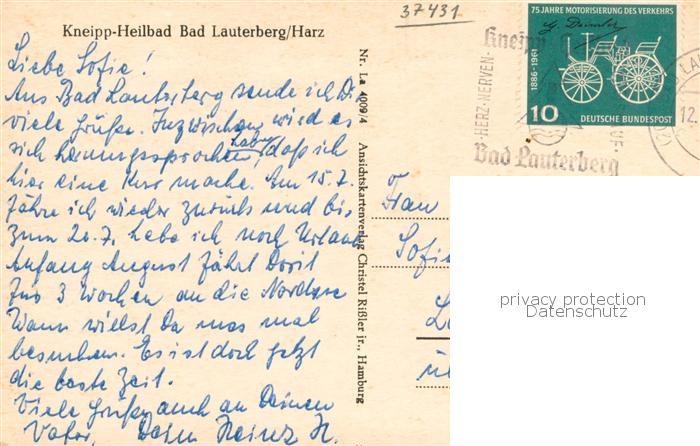 37431
Kneipp-Heilbad Bad Lauterberg/Harz
Liebe Sofie!
Aus Bad Lauterberg sende ich Dir
viele Grüße. Inzwischen wird es
sich herumgesprochen haben, daß ich
hier eine Kur mache. Am 15.7.
fahre ich wieder zurück und bis
zum 20.7. habe ich noch Urlaub
Anfang August fährt Dorit
für 3 Wochen an die Nordsee
Wann willst Du uns mal
besuchen. Es ist doch jetzt
die beste Zeit.
Viele Grüße auch an Deinen
Vater, Dein Heinz H.
Nr. La 4009/4 Ansichtskartenverlag Christel Rißler jr., Hamburg
75 JAHRE MOTORISIERUNG DES VERKEHRS
G. Daimler
1886-1961
10 DEUTSCHE BUNDESPOST
Kneipp
-HERZ-NERVEN-
Bad Lauterberg
12.
Frau
Sofie
privacy protection
Datenschutz